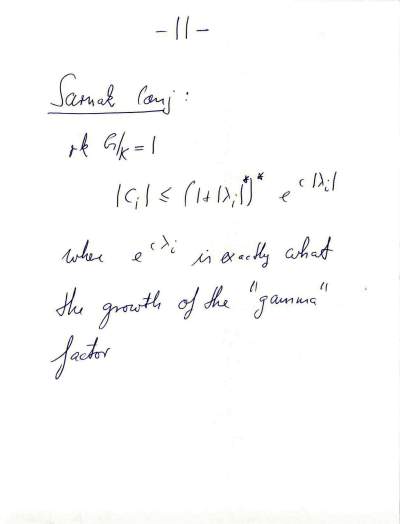 -11-
Sarnak Conj:
rk G/K = 1
|C_i| ≤ (1+|λ_i|)^* e^{c|λ_i|}
where e^{cλ_i} is exactly what
the growth of the "gamma"
factor